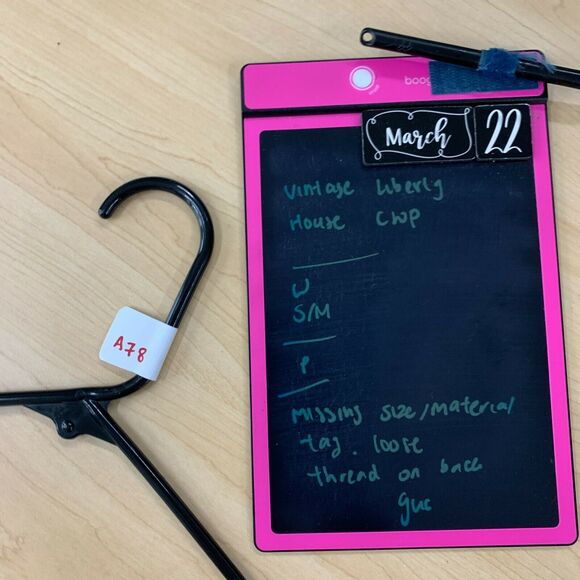 boog
March 22
Vintage Liberty
House CWP
W
S/M
P
A78
Missing size/material
tag. loose
thread on back
GUC